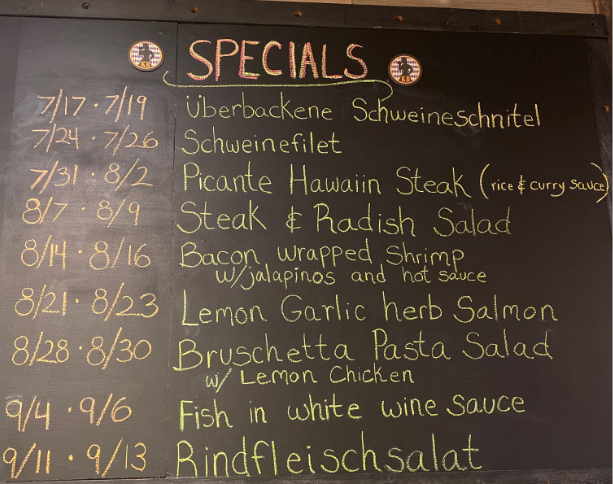 SPECIALS
7/17 · 7/19 Überbackene Schweineschnitel
7/24 · 7/26 Schweinefilet
7/31 · 8/2 Picante Hawaiin Steak (rice & curry sauce)
8/7 · 8/9 Steak & Radish Salad
8/14 · 8/16 Bacon wrapped Shrimp
w/jalapinos and hot sauce
8/21 · 8/23 Lemon Garlic herb Salmon
8/28 · 8/30 Bruschetta Pasta Salad
w/ Lemon Chicken
9/4 · 9/6 Fish in white wine sauce
9/11 · 9/13 Rindfleischsalat